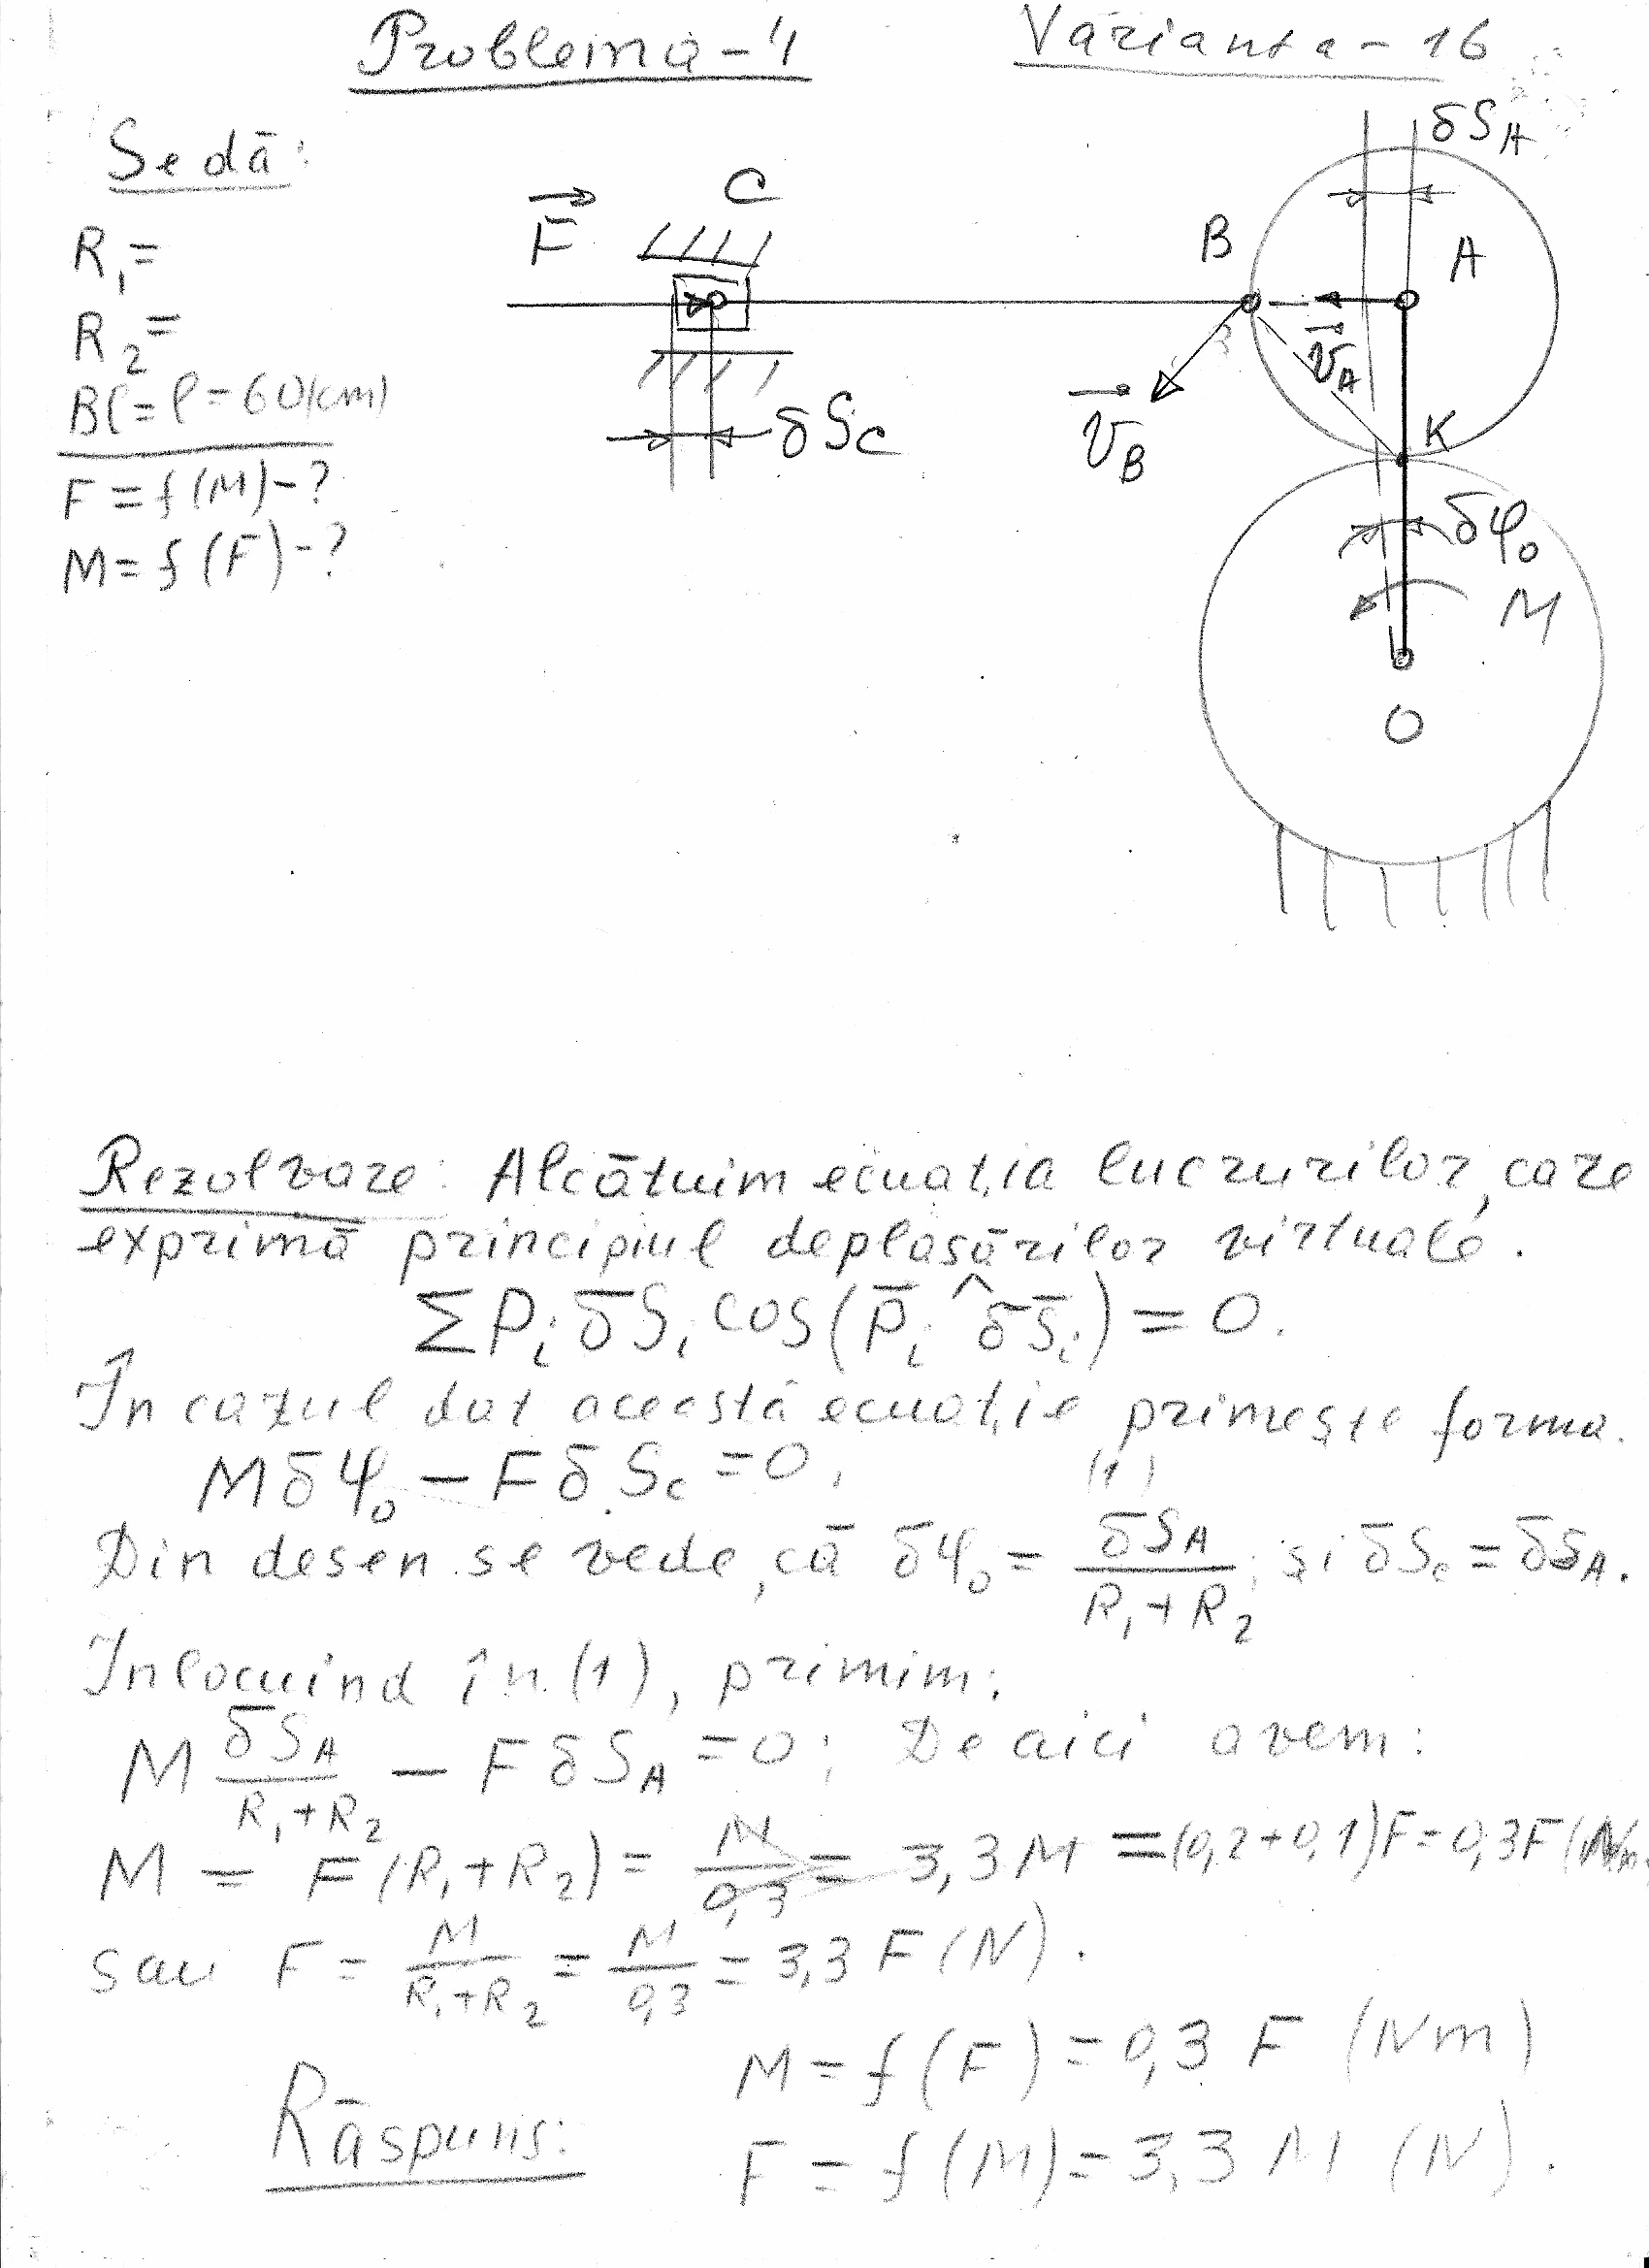 Problema-4 Varianta-16
Se dă:
R₁=
R₂=
BC=ℓ=60(cm)
F=f(M)-?
M=f(F)-?
δS_A
C
F
B
A
v_A
v_B
δS_C
K
δφ₀
M
O
Rezolvare: Alcătuim ecuația lucrurilor, care
exprimă principiul deplasărilor virtuale.
ΣPᵢδSᵢcos(P̄ᵢ^δS̄ᵢ)=0.
În cazul dat această ecuație primește forma.
Mδφ₀-FδS_c=0, (1)
Din desen se vede, că δφ₀=δS_A/(R₁+R₂); și δS_c=δS_A.
Inlocuind în (1), primim:
M δS_A/(R₁+R₂) - FδS_A=0; De aici avem:
M=F(R₁+R₂)=M/0,3=3,3M=(0,2+0,1)F=0,3F(Nm)
sau F=M/(R₁+R₂)=M/0,3=3,3F(N).
M=f(F)=0,3F (Nm)
Răspuns:
F=f(M)=3,3M (N).